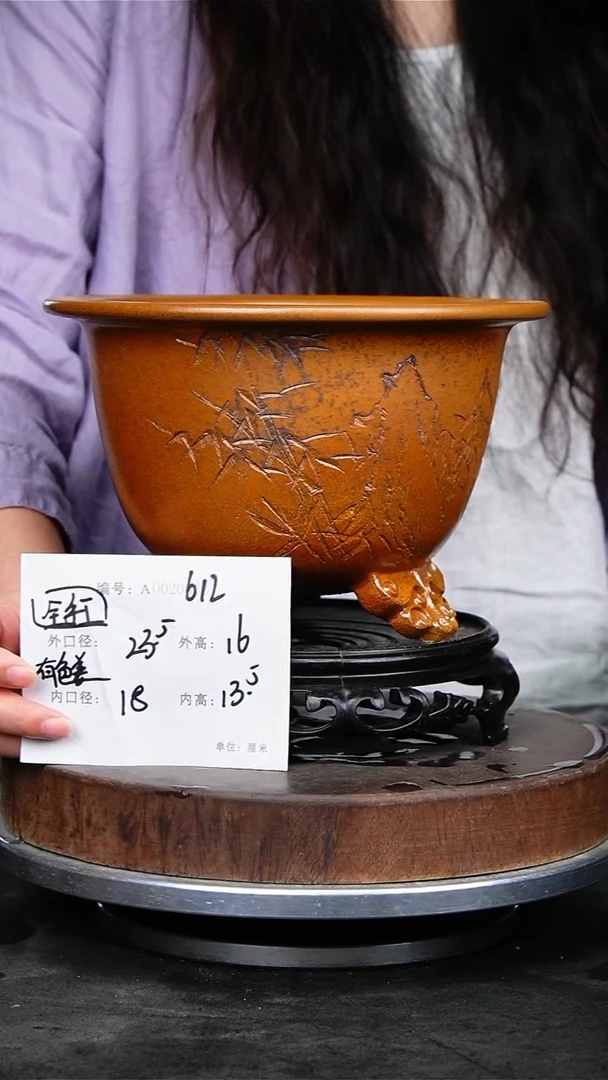 编号：A0020612
全手工
外口径：23.5 外高：16
有色差
内口径：18 内高：13.5
单位：厘米